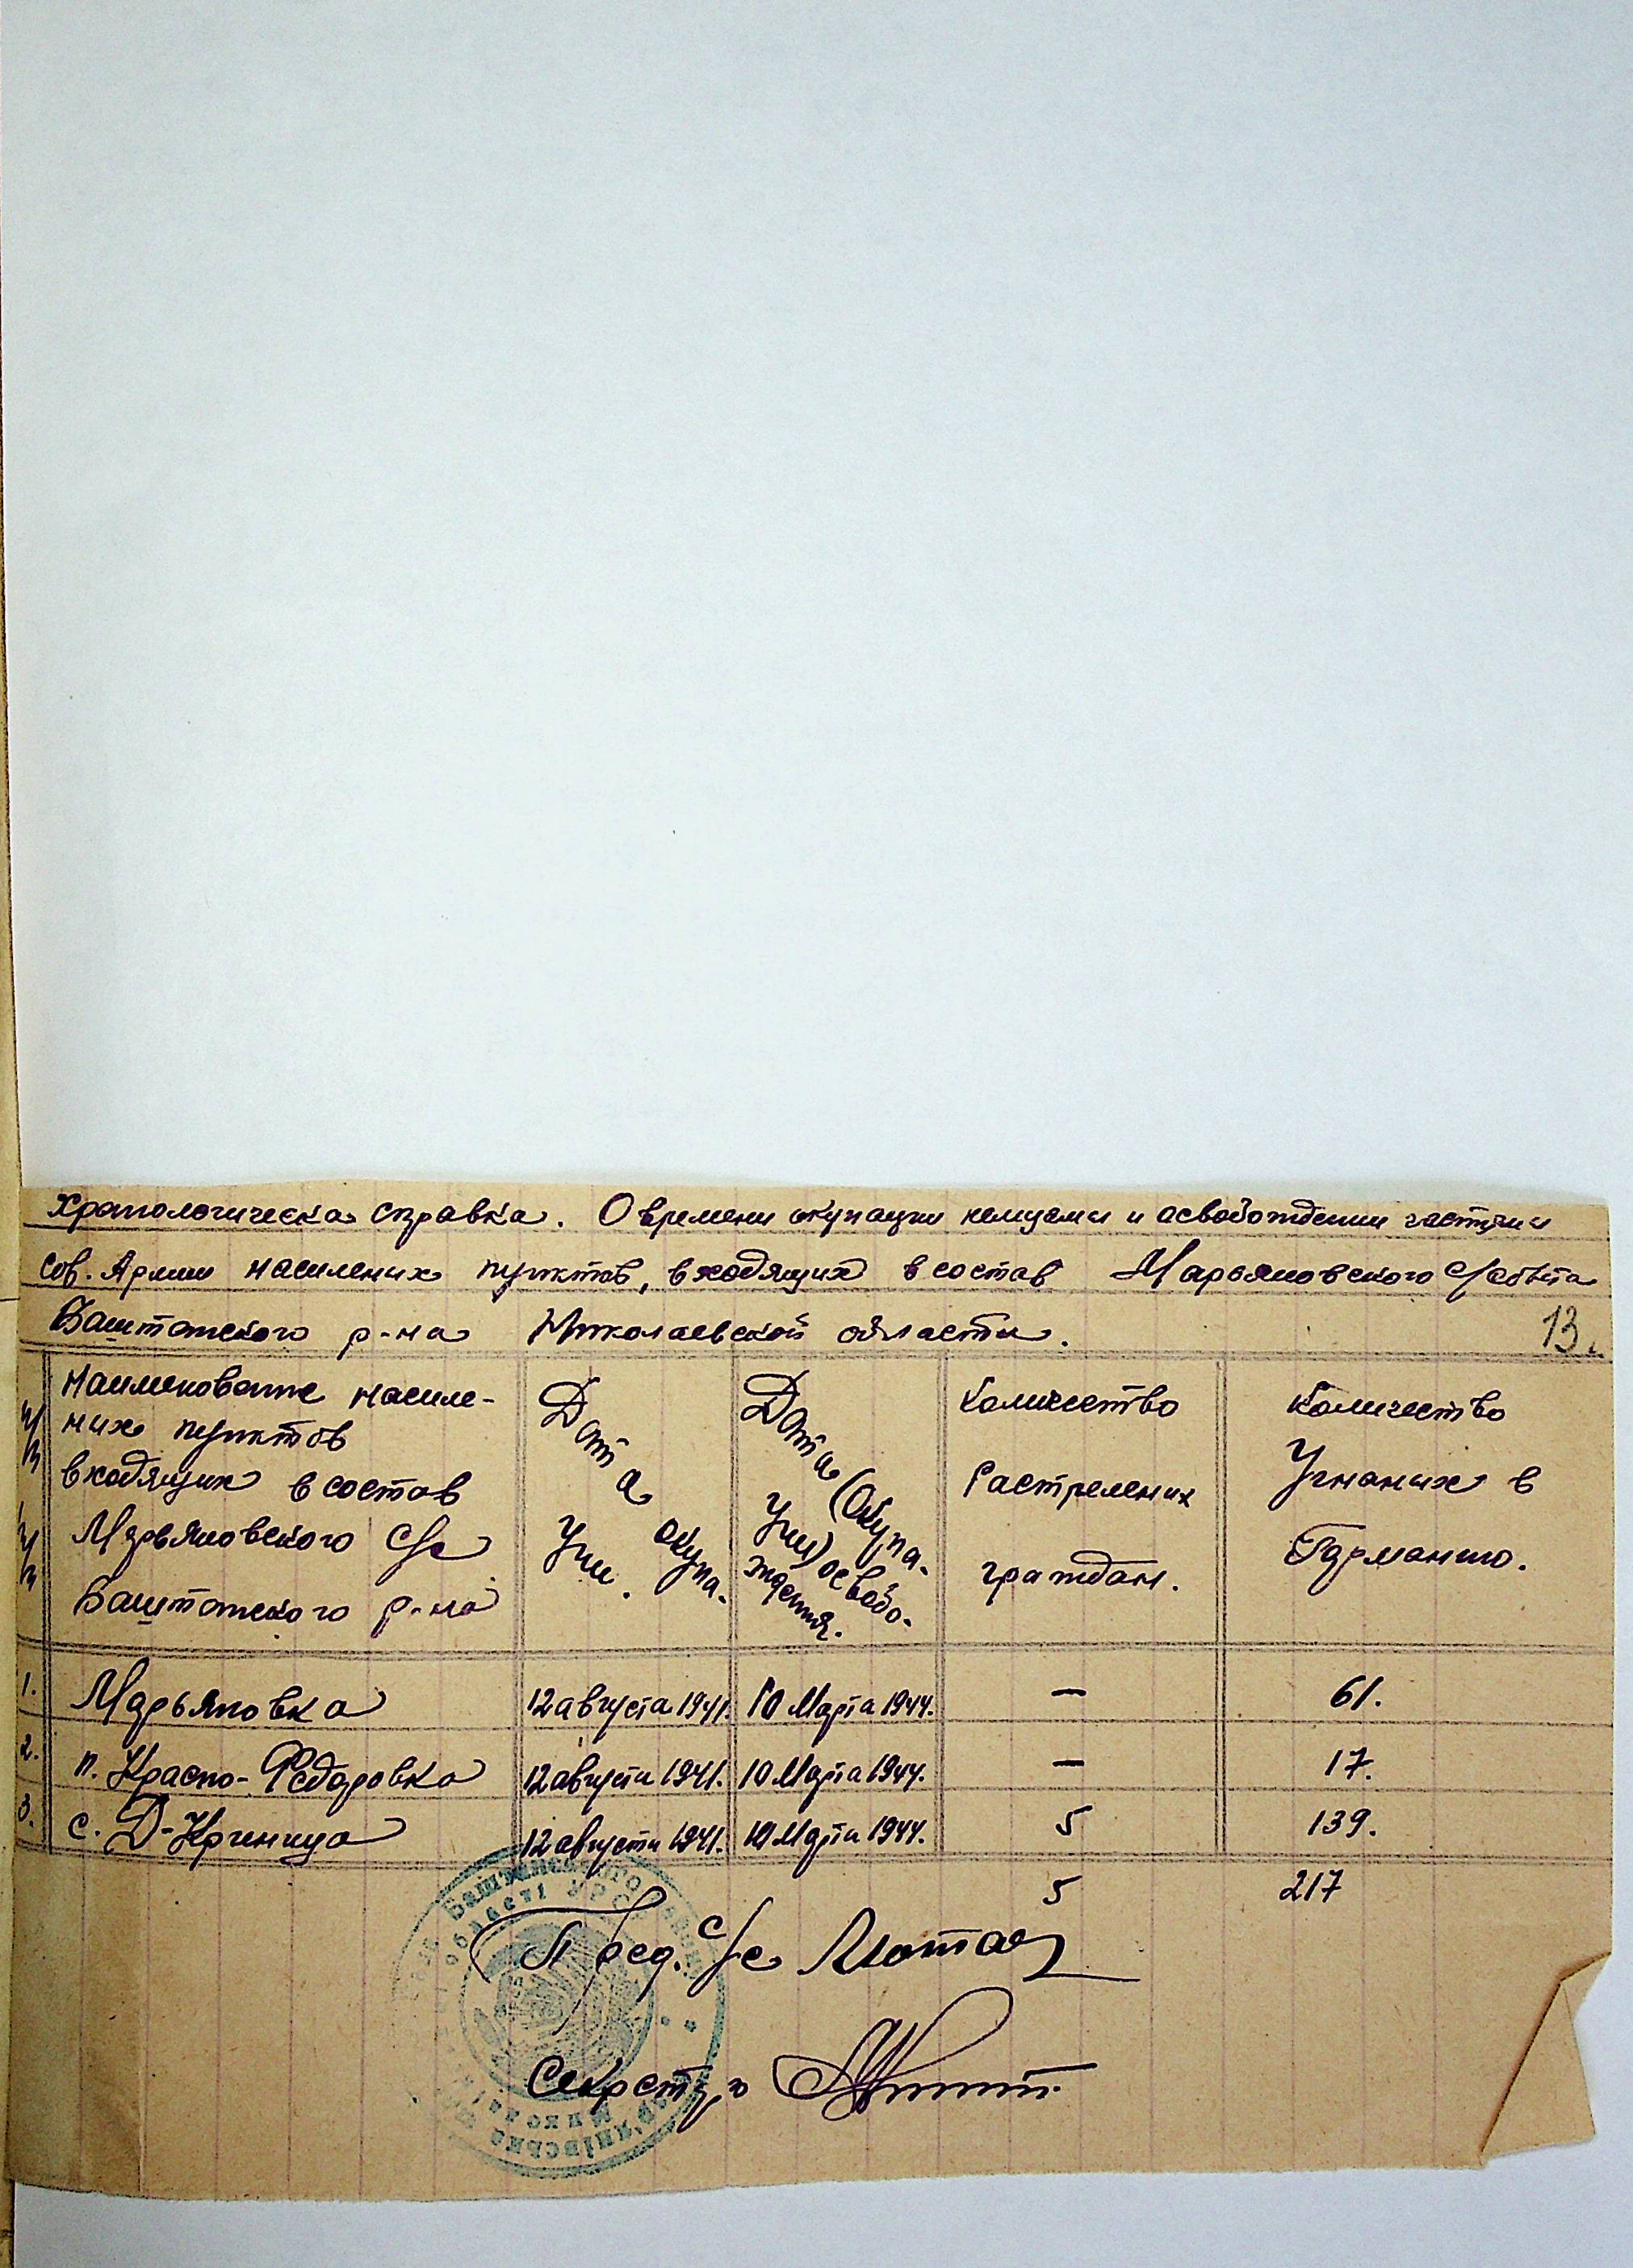 Хронологическа справка. О времени окупации немцами и асвобождении частями
Сов. Армии населеных пунктов, входящих в состав Марьяновского с/совета
Баштанского р-на Николаевской области.
13
Наименование населе-
ных пунктов
входящих в состав
Марьяновского с/с
Баштанского р-на
Дата окупа-
ции.
Дата (окупа-
ции) освобо-
ждения.
Количество
Растреленых
граждан.
Количество
Угнаных в
Германию.
1. Марьяновка 12 августа 1941. 10 Марта 1944. — 61.
2. п. Красно-Федоровка 12 августа 1941. 10 Марта 1944. — 17.
3. с. Д-Криница 12 августа 1941. 10 Марта 1944. 5 139.
5 217
Пред. с/с
Секретарь
Баштанського
області УРСР